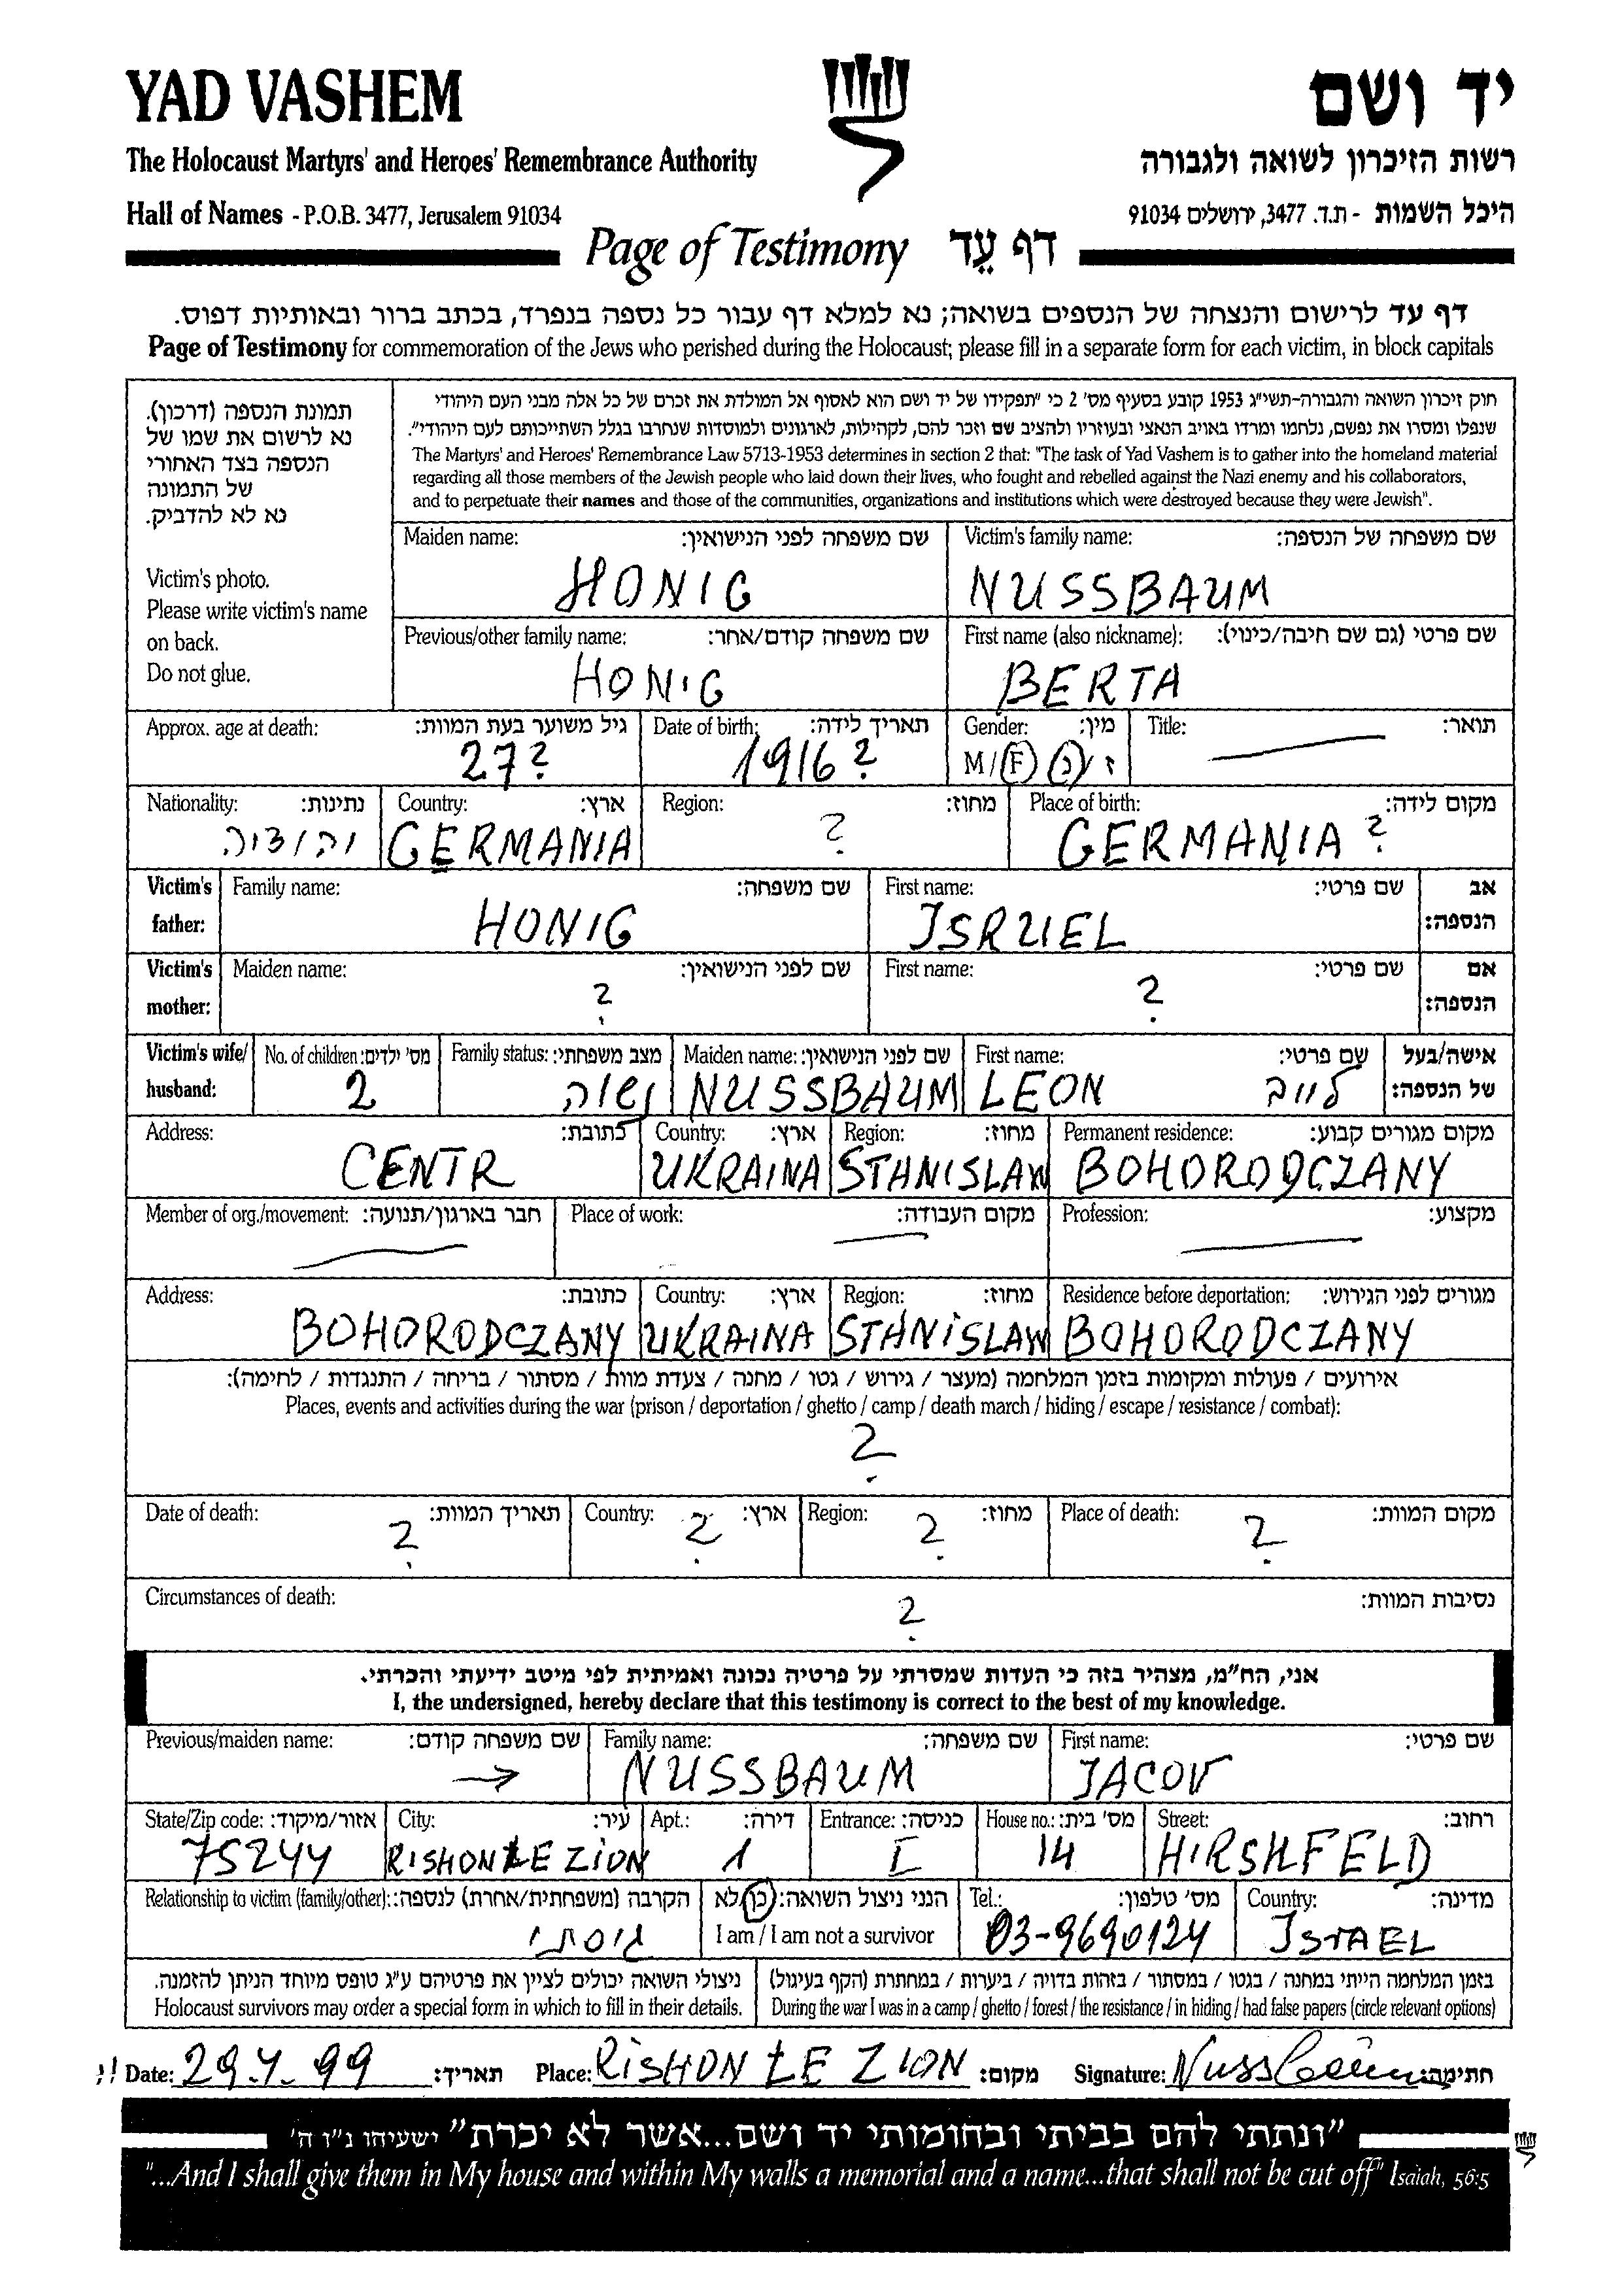 YAD VASHEM
יד ושם
The Holocaust Martyrs' and Heroes' Remembrance Authority
רשות הזיכרון לשואה ולגבורה
Hall of Names - P.O.B. 3477, Jerusalem 91034
היכל השמות - ת.ד. 3477, ירושלים 91034
Page of Testimony דף עֵד
דף עד לרישום והנצחה של הנספים בשואה; נא למלא דף עבור כל נספה בנפרד, בכתב ברור ובאותיות דפוס.
Page of Testimony for commemoration of the Jews who perished during the Holocaust; please fill in a separate form for each victim, in block capitals
תמונת הנספה (דרכון).
נא לרשום את שמו של
הנספה בצד האחורי
של התמונה
נא לא להדביק.
Victim's photo.
Please write victim's name
on back.
Do not glue.
חוק זיכרון השואה והגבורה-תשי"ג 1953 קובע בסעיף מס' 2 כי "תפקידו של יד ושם הוא לאסוף אל המולדת את זכרם של כל אלה מבני העם היהודי
שנפלו ומסרו את נפשם, נלחמו ומרדו באויב הנאצי ובעוזריו ולהציב שם וזכר להם, לקהילות, לארגונים ולמוסדות שנחרבו בגלל השתייכותם לעם היהודי".
The Martyrs' and Heroes' Remembrance Law 5713-1953 determines in section 2 that: "The task of Yad Vashem is to gather into the homeland material
regarding all those members of the Jewish people who laid down their lives, who fought and rebelled against the Nazi enemy and his collaborators,
and to perpetuate their names and those of the communities, organizations and institutions which were destroyed because they were Jewish".
Maiden name: שם משפחה לפני הנישואין: Victim's family name: שם משפחה של הנספה:
HONIG NUSSBAUM
Previous/other family name: שם משפחה קודם/אחר: First name (also nickname): שם פרטי (גם שם חיבה/כינוי):
HONIG BERTA
Approx. age at death: גיל משוער בעת המוות: Date of birth: תאריך לידה: Gender: מין: Title: תואר:
27? 1916? M/F ז/נ
Nationality: נתינות: Country: ארץ: Region: מחוז: Place of birth: מקום לידה:
יהודיה GERMANIA ? GERMANIA ?
Victim's father: Family name: שם משפחה: First name: שם פרטי: אב הנספה:
HONIG ISRUEL
Victim's mother: Maiden name: שם לפני הנישואין: First name: שם פרטי: אם הנספה:
? ?
Victim's wife/husband: No. of children: מס' ילדים: Family status: מצב משפחתי: Maiden name: שם לפני הנישואין: First name: שם פרטי: אישה/בעל של הנספה:
2 נשוה NUSSBAUM LEON לייב
Address: כתובת: Country: ארץ: Region: מחוז: Permanent residence: מקום מגורים קבוע:
CENTR UKRAINA STANISLAW BOHORODCZANY
Member of org./movement: חבר בארגון/תנועה: Place of work: מקום העבודה: Profession: מקצוע:
Address: כתובת: Country: ארץ: Region: מחוז: Residence before deportation: מגורים לפני הגירוש:
BOHORODCZANY UKRAINA STANISLAW BOHORODCZANY
אירועים / פעולות ומקומות בזמן המלחמה (מעצר / גירוש / גטו / מחנה / צעדת מוות / מסתור / בריחה / התנגדות / לחימה):
Places, events and activities during the war (prison / deportation / ghetto / camp / death march / hiding / escape / resistance / combat):
?
Date of death: תאריך המוות: Country: ארץ: Region: מחוז: Place of death: מקום המוות:
? ? ? ?
Circumstances of death: נסיבות המוות:
?
אני, הח"מ, מצהיר בזה כי העדות שמסרתי על פרטיה נכונה ואמיתית לפי מיטב ידיעתי והכרתי.
I, the undersigned, hereby declare that this testimony is correct to the best of my knowledge.
Previous/maiden name: שם משפחה קודם: Family name: שם משפחה: First name: שם פרטי:
→ NUSSBAUM JACOV
State/Zip code: אזור/מיקוד: City: עיר: Apt.: דירה: Entrance: כניסה: House no.: מס' בית: Street: רחוב:
75244 RISHON LE ZION 1 I 14 HIRSHFELD
Relationship to victim (family/other): הקרבה (משפחתית/אחרת) לנספה: הנני ניצול השואה: כן/לא Tel.: מס' טלפון: Country: מדינה:
גיסתי I am / I am not a survivor 03-9690124 ISTAEL
ניצולי השואה יכולים לציין את פרטיהם ע"ג טופס מיוחד הניתן להזמנה.
Holocaust survivors may order a special form in which to fill in their details.
בזמן המלחמה הייתי במחנה / בגטו / במסתור / בזהות בדויה / ביערות / במחתרת (הקף בעיגול)
During the war I was in a camp / ghetto / forest / the resistance / in hiding / had false papers (circle relevant options)
Date: 29.4.99 תאריך: Place: RISHON LE ZION מקום: Signature: Nussbaum חתימה:
"ונתתי להם בביתי ובחומותי יד ושם...אשר לא יכרת" ישעיהו נ"ו ה'
"...And I shall give them in My house and within My walls a memorial and a name...that shall not be cut off" Isaiah, 56:5